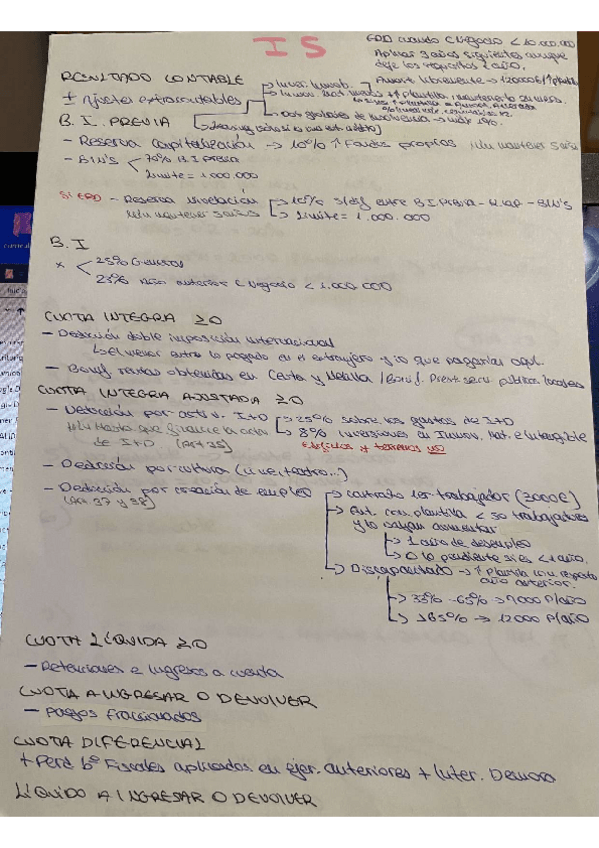 IS
ERD cuando C Negocio < 10.000.000
Aplicar 3 años siguientes aunque
deje los requisitos 1 año.
RESULTADO CONTABLE
± Ajustes extracontables
Amort. libremente → 120000€/↑plantilla
Inmov. Mat. nuevos ↑↑ plantilla mantenerlo 24 meses.
→ máx 1%.
B. I. PREVIA
- Reserva Capitalización → 10% ↑ Fondos propios Min mantener 5años
- BIN's 70% B.I previa
Límite = 1.000.000
Si ERD - Reserva Nivelación 10% s/dif entre B I PREVIA - R.CAP - BIN's
Min mantener 5años Límite = 1.000.000
B. I
x 25% General
23% Año anterior C Negocio < 1.000.000
CUOTA INTEGRA ≥0
- Deducción doble imposición internacional
El menor entre lo pagado en el extranjero y lo que pagarías aquí.
- Bonif rentas obtenidas en Ceuta y Melilla / Bonif. Prest. serv. públicos locales
CUOTA INTEGRA AJUSTADA ≥0
- Deducción por activ. I+D 25% sobre los gastos de I+D
8% inversiones en Inmov. Mat. e Intangible
de I+D (Art 35) Edificios y terrenos NO
- Deducción por cultura (cine, teatro...)
- Deducción por creación de empleo contrato 1er trabajador (3000€)
(Art. 37 y 38) Ent. con plantilla < 50 trabajadores
y lo vayan aumentar
1 año de desempleo
O lo pendiente si es < 1 año.
Discapacitado → ↑ plantilla con respecto
año anterior.
33% - 65% → 9000 P/año
≥65% → 12000 P/año
CUOTA LÍQUIDA ≥0
- Retenciones e Ingresos a cuenta
CUOTA A INGRESAR O DEVOLVER
- Pagos fraccionados
CUOTA DIFERENCIAL
+ Perd bº Fiscales aplicados en ejer. anteriores + Inter. Demora
LÍQUIDO A INGRESAR O DEVOLVER